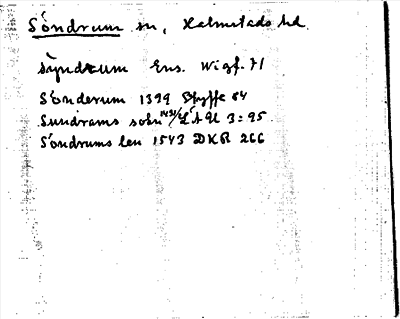 Söndrum sn, Halmstads hd
Syndrum Ens. Wigf. 71
Sönderum 1399 Styffe 84
Sundrams sokn 1431/ LÄU 3:95.
Söndrums len 1543 DKR 266